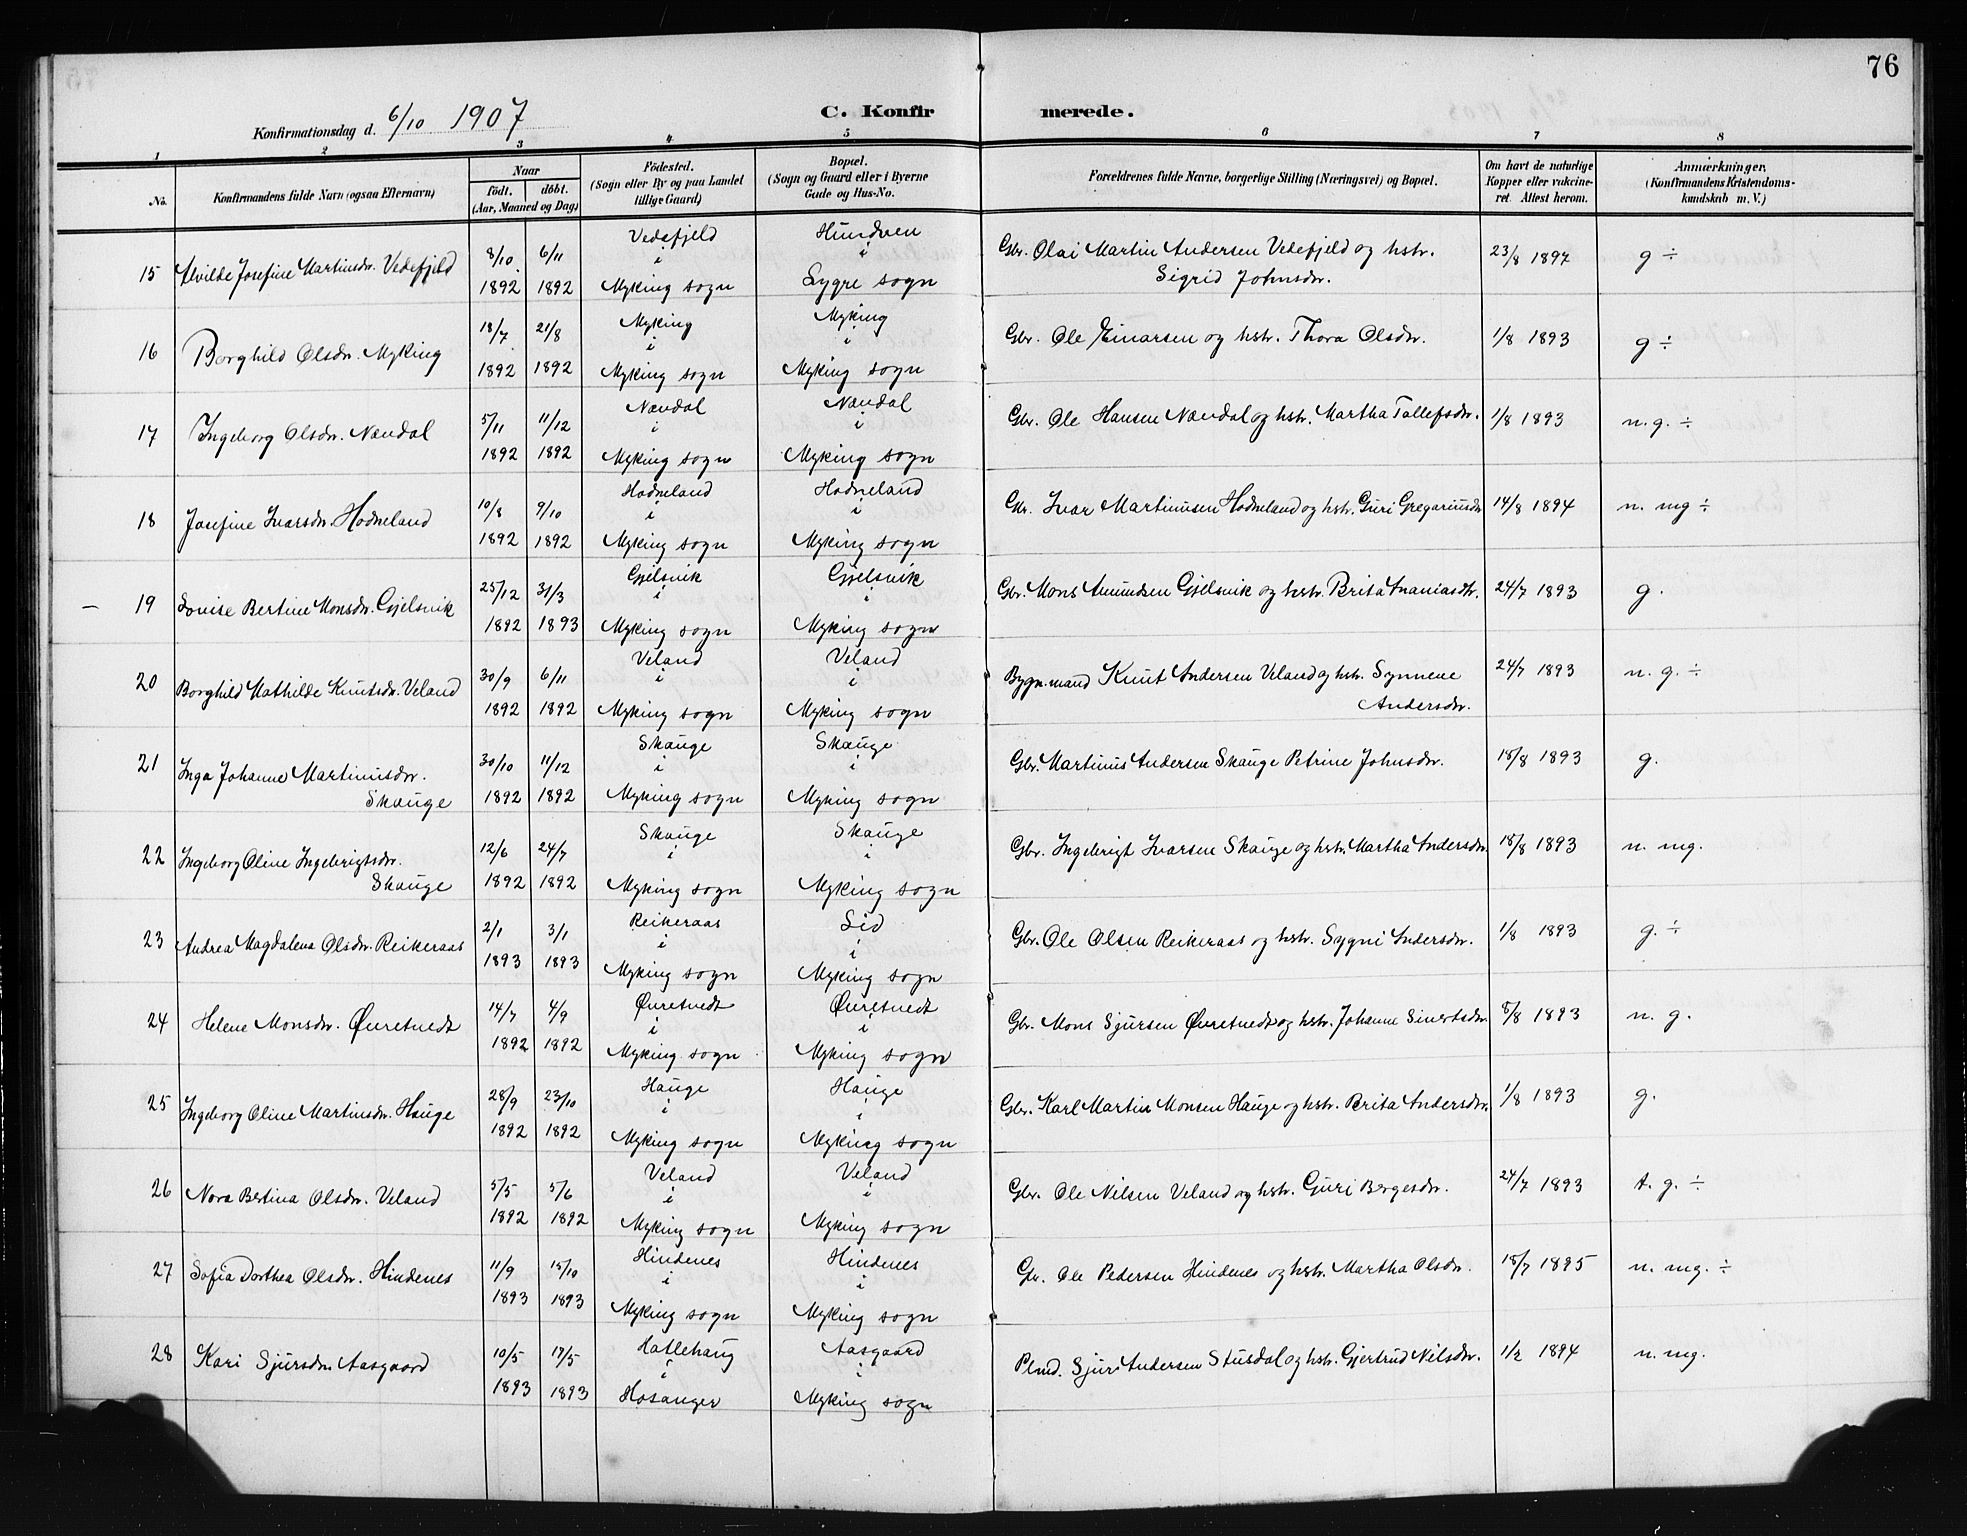 76
Konfirmationsdag d. 6/10 1907
C. Konfir merede.
1 2 3 4 5 6 7 8
No. Konfirmandens fulde Navn (ogsaa Efternavn)
Naar
født. døbt.
(Aar, Maaned og Dag)
Fødested.
(Sogn eller By og paa Landet
tillige Gaard)
Bopæl.
(Sogn og Gaard eller i Byerne
Gade og Hus-No.
Forældrenes fulde Navne, borgerlige Stilling (Næringsvei) og Bopæl.
Om havt de naturlige
Kopper eller vakcine-
ret. Attest herom.
Anmærkninger.
(Konfirmandens Kristendoms-
kundskab m. V.)
15 Alvilde Josefine Martinsdr. Vedefjeld 8/10 6/11 Vedefjeld Hundven Gbr. Olai Martin Andersen Vedefjeld og hstr. 23/8 1897 g ÷
i i Sigrid Johnsdr.
1892 1892 Myking sogn Lygre sogn
16 Borghild Olsdr. Myking 18/7 21/8 Myking Myking Gbr. Ole Einarsen og hstr. Thora Olsdr. 1/8 1893 g ÷
i i
1892 1892 Myking sogn Myking sogn
17 Ingeborg Olsdr. Nændal 5/11 11/12 Nændal Nændal Gbr. Ole Hansen Nændal og hstr. Martha Tollefsdr. 1/8 1893 n. g. ÷
i i
1892 1892 Myking sogn Myking sogn
18 Josefine Ivarsdr. Hodneland 10/8 9/10 Hodneland Hodneland Gbr. Ivar Martinusen Hodneland og hstr. Guri Gregariusdr 14/8 1894 n. mg ÷
i i
1892 1892 Myking sogn Myking sogn
– 19 Lovise Bertine Monsdr. Gjelsvik 25/12 31/3 Gjelsvik Gjelsvik Gbr. Mons Amundsen Gjelsvik og hstr. Brita Ananiasdtr. 24/7 1893 g.
i i
1892 1893 Myking sogn Myking sogn
20 Borghild Mathilde Knutsdr. Veland 30/9 6/11 Veland Veland Bygn.mand Knut Andersen Veland og hstr. Synneve 24/7 1893 n. g. ÷
i i Andersdr.
1892 1892 Myking sogn Myking sogn
21 Inga Johanne Martinusdr. 30/10 11/12 Skauge Skauge Gbr. Martinus Andersen Skauge Petrine Johnsdr. 18/8 1893 g.
i i
Skauge 1892 1892 Myking sogn Myking sogn
22 Ingeborg Oline Ingebrigtsdr. 12/6 24/7 Skauge Skauge Gbr. Ingebrigt Ivarsen Skauge og hstr. Martha Andersdr. 18/8 1893 n. mg.
i i
Skauge 1892 1892 Myking sogn Myking sogn
23 Andrea Magdalena Olsdr. Reikeraas 2/1 3/1 Reikeraas Lid Gbr. Ole Olsen Reikeraas og hstr. Sygni Andersdr. 1/8 1893 g. ÷
i i
1893 1893 Myking sogn Myking sogn
24 Helene Monsdr. Øvretvedt 14/7 4/9 Øvretvedt Øvretvedt Gbr. Mons Sjursen Øvretvedt og hstr. Johanne Sivertsdr. 8/8 1893 n. g.
i i
1892 1892 Myking sogn Myking sogn
25 Ingeborg Oline Martinsdr. Hauge 28/9 23/10 Hauge Hauge Gbr. Karl Martin Monsen Hauge og hstr. Brita Andersdr. 1/8 1893 g.
i i
1892 1892 Myking sogn Myking sogn
26 Nora Bertina Olsdr. Veland 5/5 5/6 Veland Veland Gbr. Ole Nilsen Veland og hstr. Guri Bergesdr. 24/7 1893 t. g. ÷
i i
1892 1892 Myking sogn Myking sogn
27 Sofia Dorthea Olsdr. Hindenes 11/9 15/10 Hindenes Hindenes Gbr. Ole Pedersen Hindenes og hstr. Martha Olsdr. 18/7 1895 n. mg. ÷
i i
1893 1893 Myking sogn Myking sogn
28 Kari Sjursdr. Aasgaard 10/5 17/5 Hatlehaug Aasgaard Plmd. Sjur Andersen Stusdal og hstr. Gjertrud Nilsdr. 1/2 1894 n. mg.
i i
1893 1893 Hosanger Myking sogn